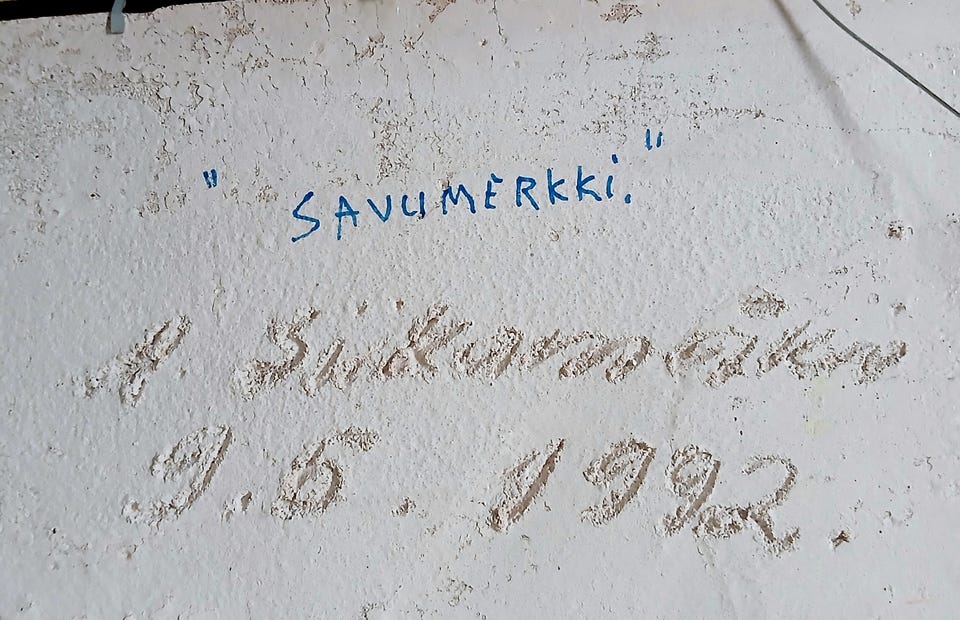 "SAVUMERKKI."
Siikamäki
9.5. 1992.